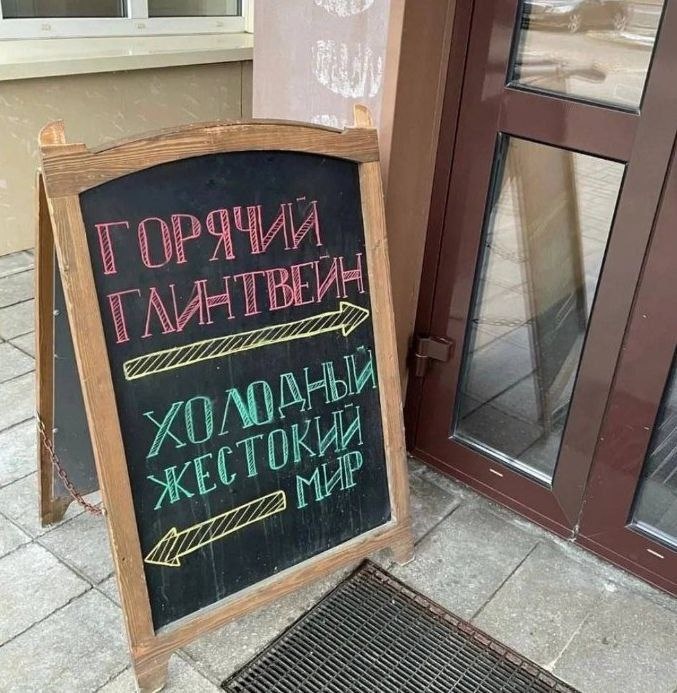 ГОРЯЧИЙ
ГЛИНТВЕЙН
ХОЛОДНЫЙ
ЖЕСТОКИЙ
МИР